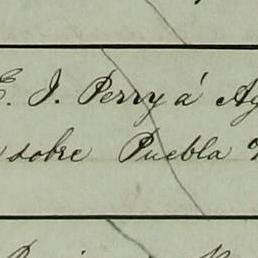 E. J. Perry á Ag
sobre Puebla